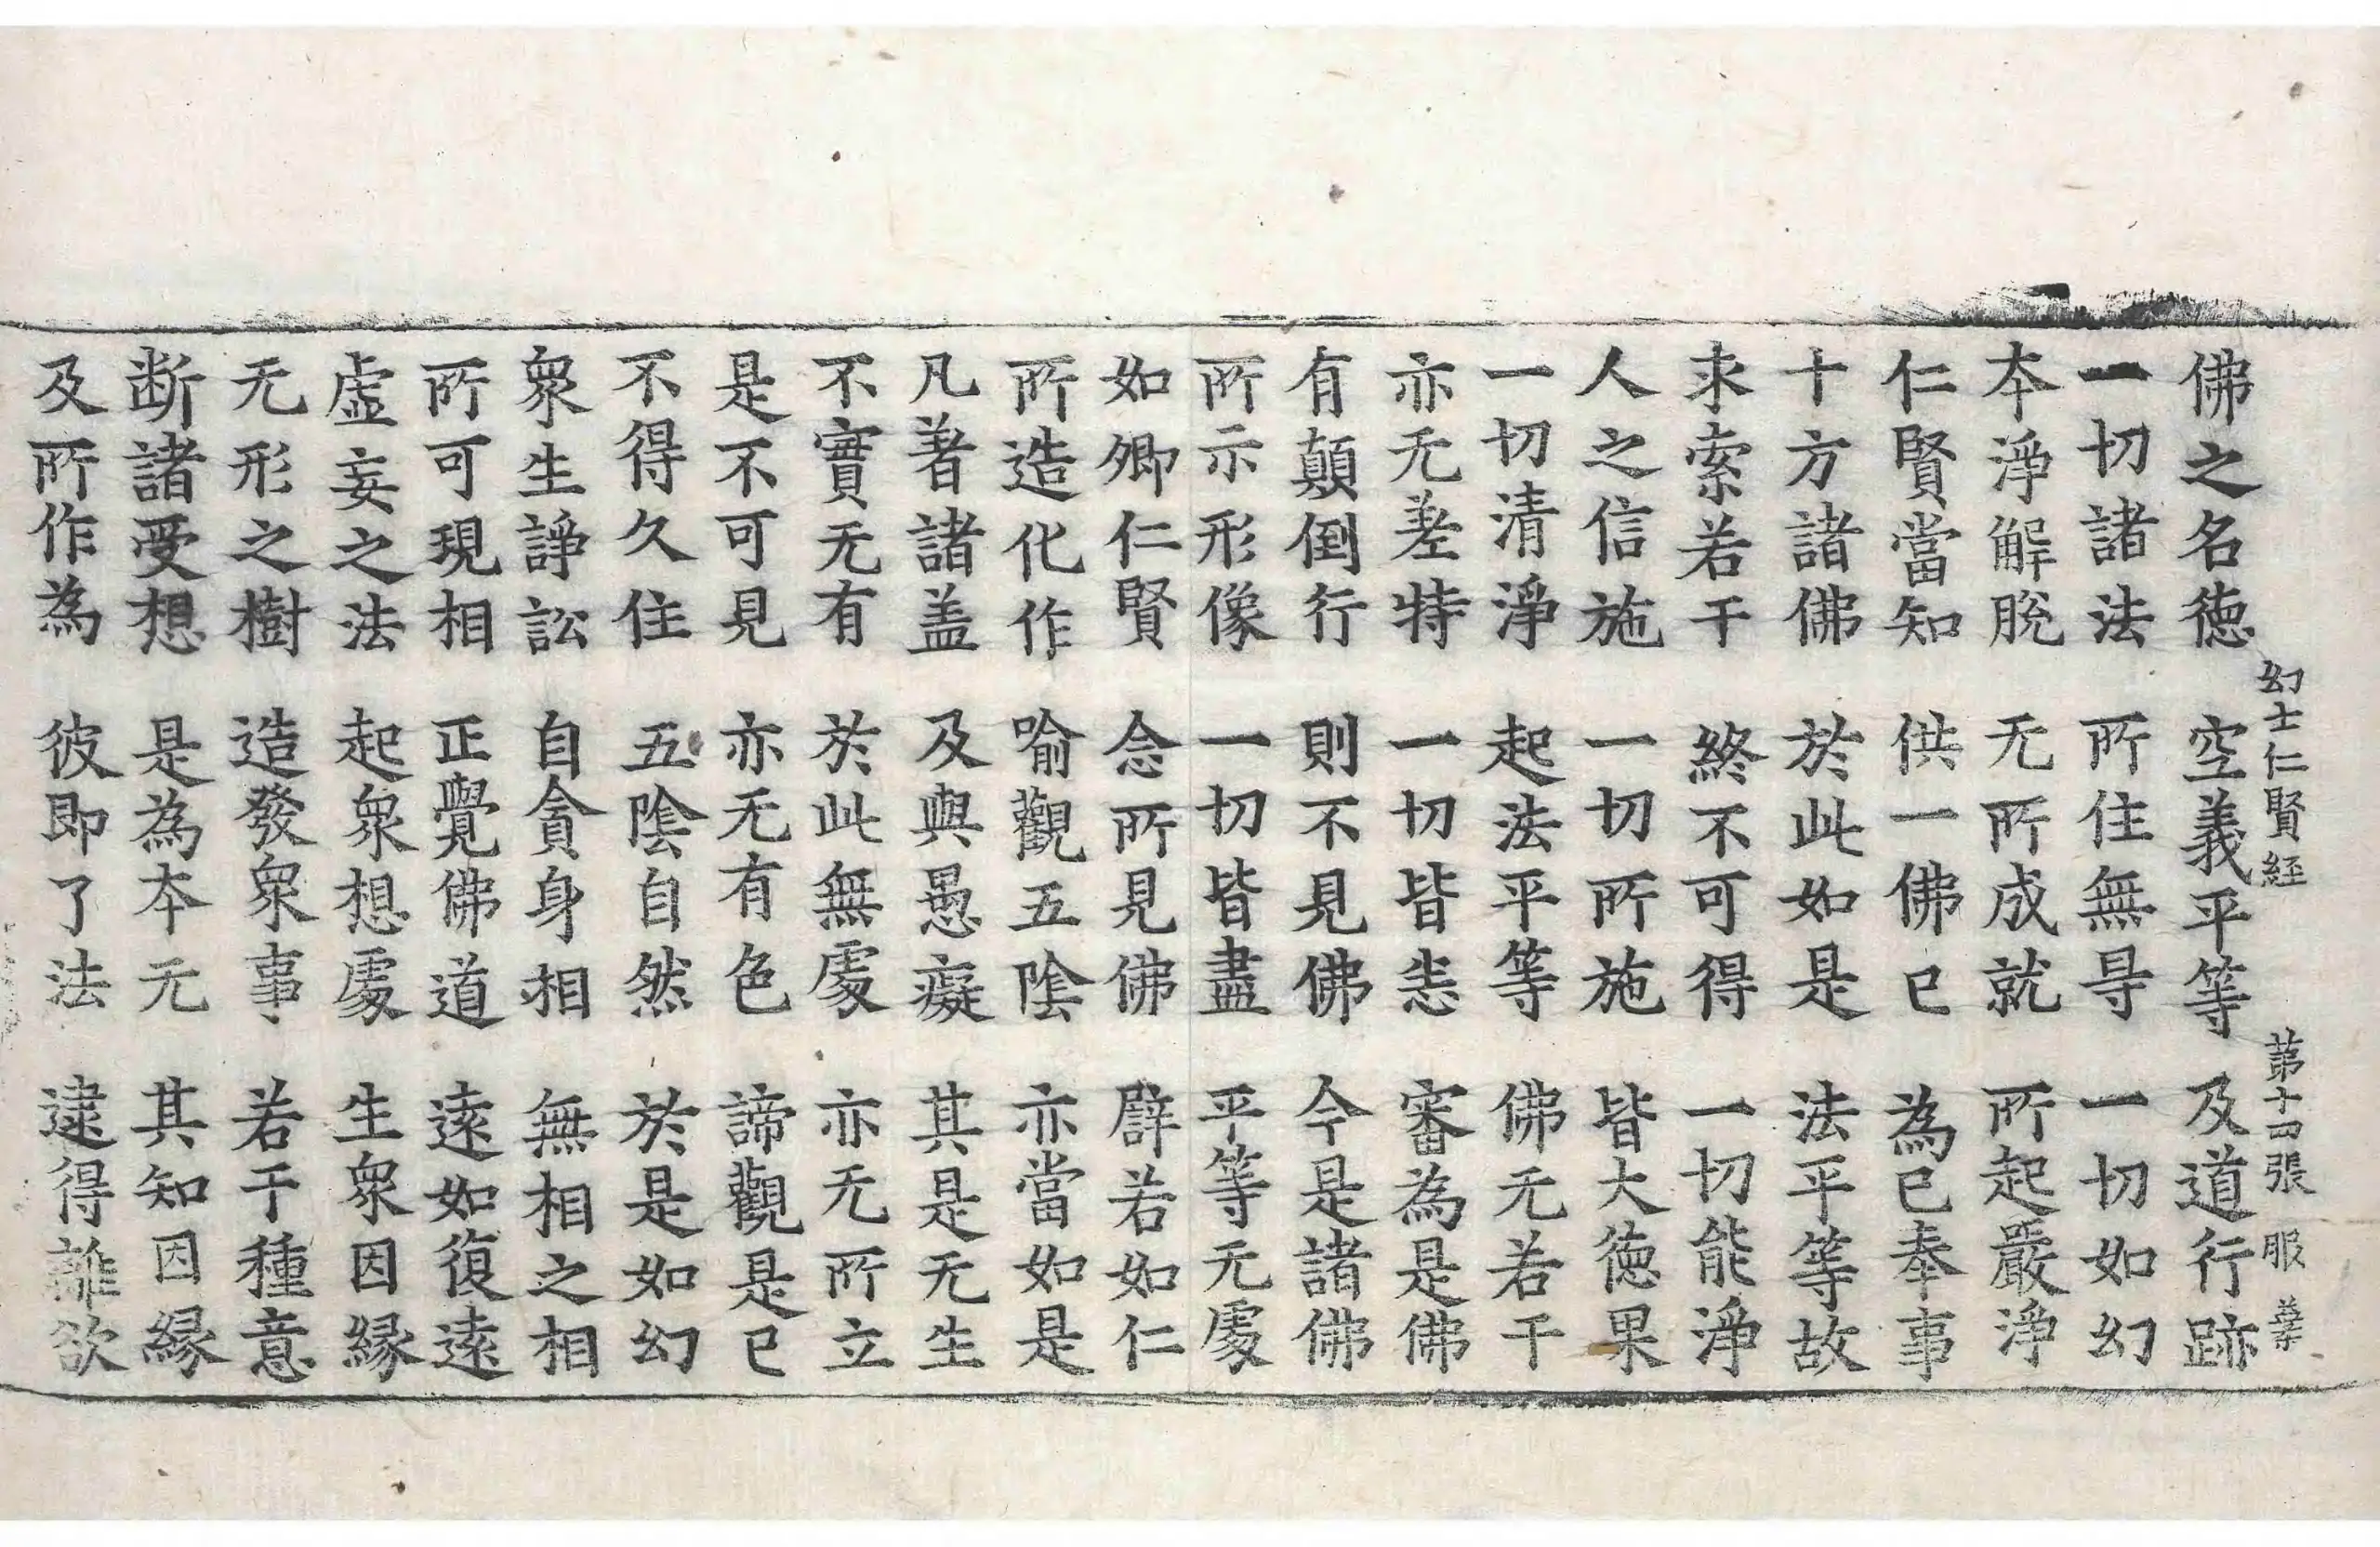 幻士仁賢経 第十四張 服
佛之名徳 空義平等 及道行跡
一切諸法 所住無㝵 一切如幻
夲淨解脫 无所成就 所起嚴淨
仁賢當知 供一佛已 為已奉事
十方諸佛 於此如是 法平等故
求索若干 終不可得 一切能淨
人之信施 一切所施 皆大徳果
一切清淨 起法平等 佛无若干
亦无差特 一切皆悉 審為是佛
有顛倒行 則不見佛 今是諸佛
所示形像 一切皆盡 平等无處
如卿仁賢 念所見佛 辟若如仁
所造化作 喻觀五陰 亦當如是
凡著諸盖 及與愚癡 其是无生
不實无有 於此無處 亦无所立
是不可見 亦无有色 諦觀是已
不得久住 五陰自然 於是如幻
衆生諍訟 自貪身相 無相之相
所可現相 正覺佛道 逺如復逺
虛妄之法 起衆想處 生衆因縁
无形之樹 造發衆事 若干種意
断諸受想 是為夲元 其知因縁
及所作為 彼即了法 逮得離欲